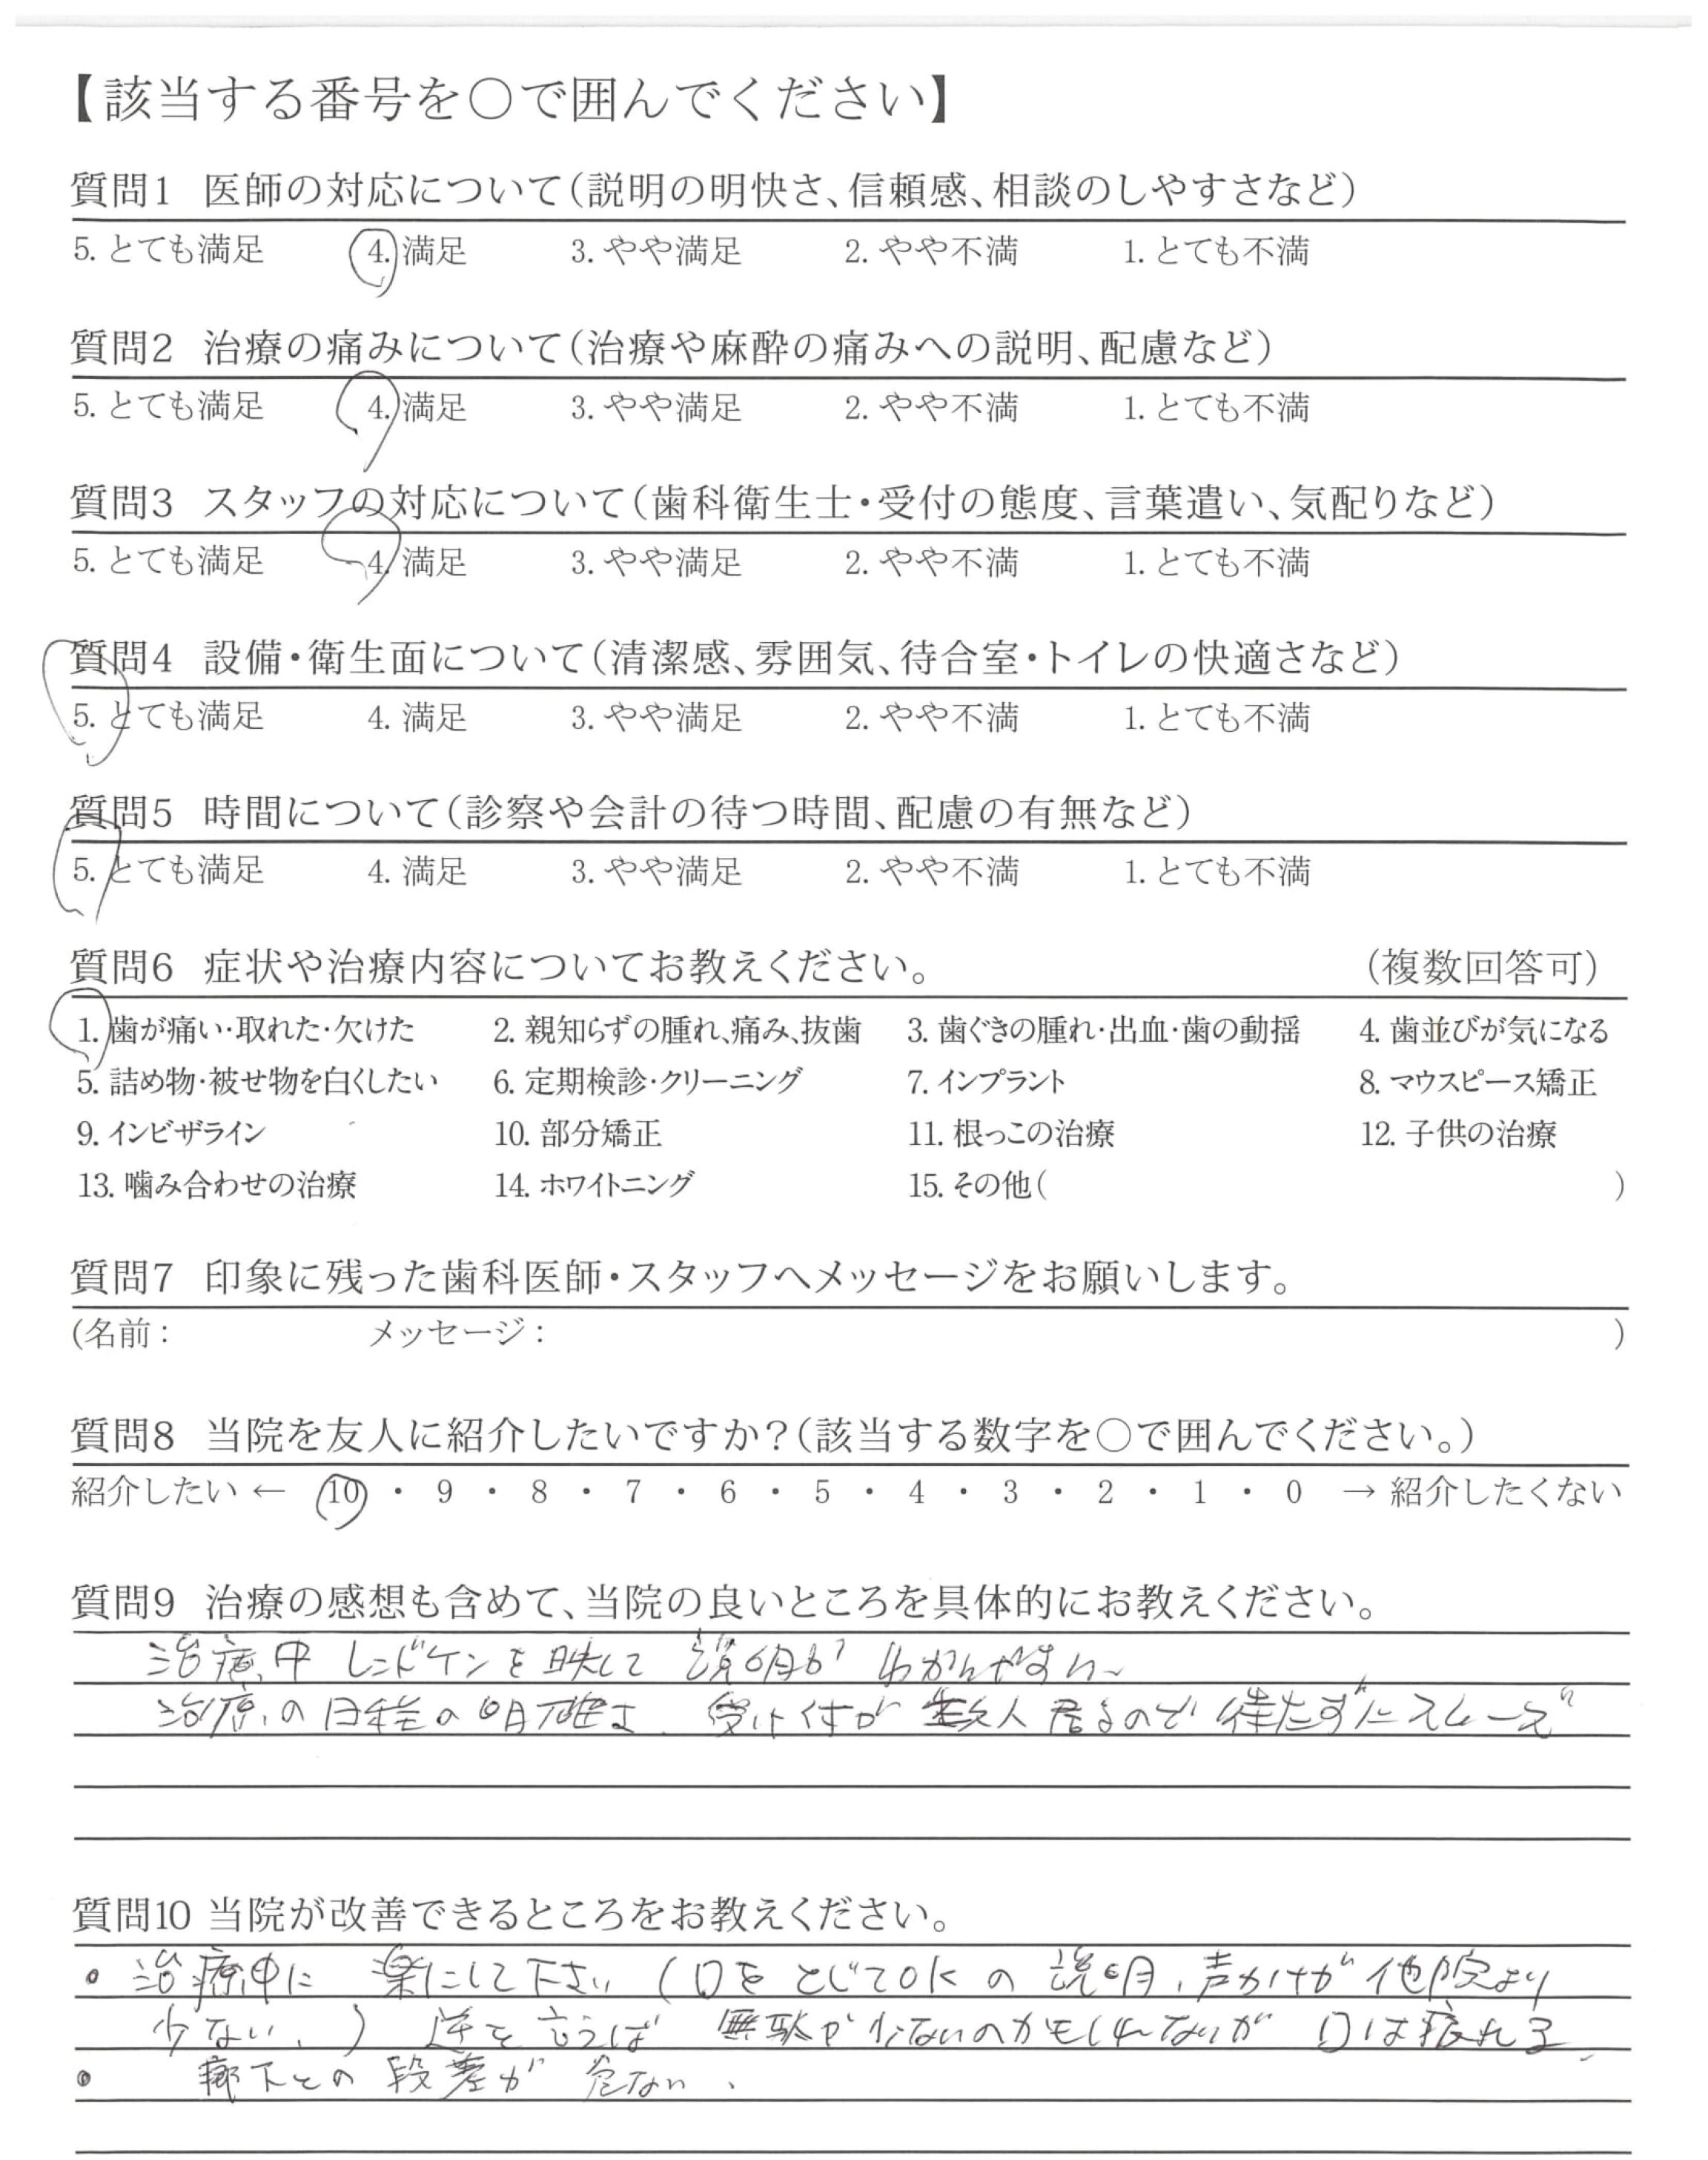 【該当する番号を〇で囲んでください】
質問1 医師の対応について(説明の明快さ、信頼感、相談のしやすさなど)
5. とても満足 4. 満足 3. やや満足 2. やや不満 1. とても不満
質問2 治療の痛みについて(治療や麻酔の痛みへの説明、配慮など)
5. とても満足 4. 満足 3. やや満足 2. やや不満 1. とても不満
質問3 スタッフの対応について(歯科衛生士・受付の態度、言葉遣い、気配りなど)
5. とても満足 4. 満足 3. やや満足 2. やや不満 1. とても不満
質問4 設備・衛生面について(清潔感、雰囲気、待合室・トイレの快適さなど)
5. とても満足 4. 満足 3. やや満足 2. やや不満 1. とても不満
質問5 時間について(診察や会計の待つ時間、配慮の有無など)
5. とても満足 4. 満足 3. やや満足 2. やや不満 1. とても不満
質問6 症状や治療内容についてお教えください。 (複数回答可)
1. 歯が痛い・取れた・欠けた 2. 親知らずの腫れ、痛み、抜歯 3. 歯ぐきの腫れ・出血・歯の動揺 4. 歯並びが気になる
5. 詰め物・被せ物を白くしたい 6. 定期検診・クリーニング 7. インプラント 8. マウスピース矯正
9. インビザライン 10. 部分矯正 11. 根っこの治療 12. 子供の治療
13. 噛み合わせの治療 14. ホワイトニング 15. その他( )
質問7 印象に残った歯科医師・スタッフへメッセージをお願いします。
(名前: メッセージ: )
質問8 当院を友人に紹介したいですか?(該当する数字を〇で囲んでください。)
紹介したい ← 10 ・ 9 ・ 8 ・ 7 ・ 6 ・ 5 ・ 4 ・ 3 ・ 2 ・ 1 ・ 0 → 紹介したくない
質問9 治療の感想も含めて、当院の良いところを具体的にお教えください。
治療中 レントゲンを映して 説明が わかりやすい
治療の日程の明確さ、受け付が 数人居るので 待たずにスムーズ
質問10 当院が改善できるところをお教えください。
• 治療中に 楽にして下さい (口を とじてOKの 説明、声かけが 他院より
少ない、) 逆を言えば 無駄が少ないのかもしれないが 口は疲れる
• 廊下との 段差が 危ない、